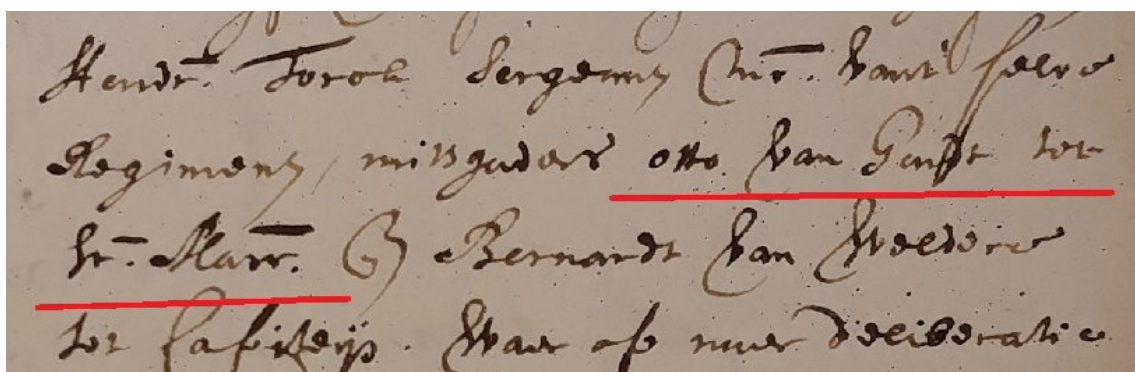 Hendr. Torck Sergeant Mr. vant selve
Regiment, mitsgaders otto van Gendt tot
Lt. Marr. En Bernardt van Welderen
tot Capiteijn. Waer op naer deliberatie